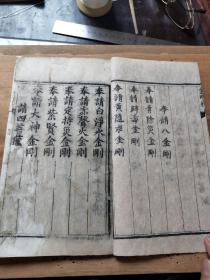 奉請八金剛
奉請青除災金剛
奉請辟毒金剛
奉請黃隨求金剛
奉請白淨水金剛
奉請赤聲火金剛
奉請定持災金剛
奉請紫賢金剛
奉請大神金剛
請四菩薩